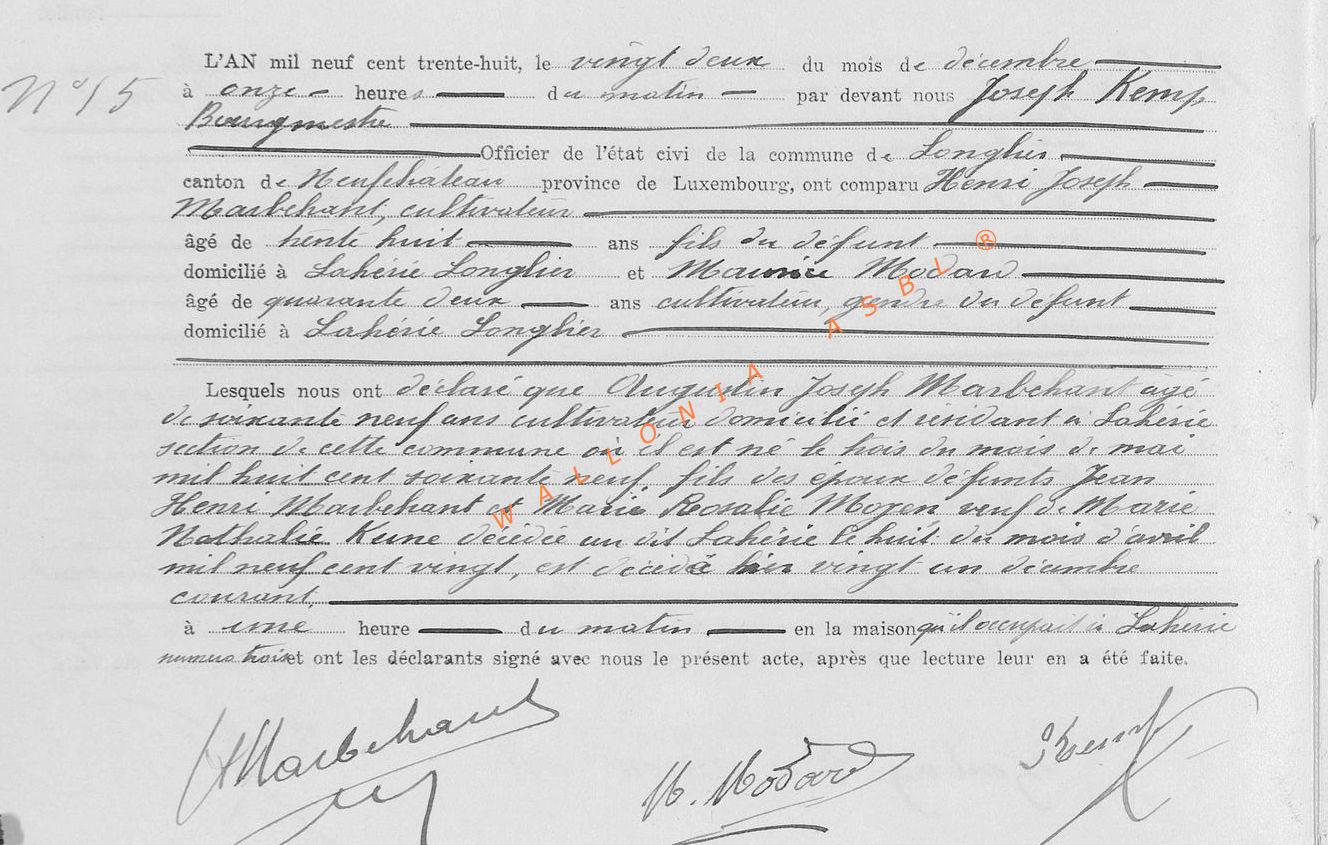 L'AN mil neuf cent trente-huit, le vingt deux du mois de décembre
N° 15
à onze heures du matin par devant nous Joseph Kemp
Bourgmestre
Officier de l'état civi de la commune de Longlier
canton de Neufchâteau province de Luxembourg, ont comparu Henri Joseph
Marbehant, cultivateur
âgé de trente huit ans fils du défunt
domicilié à Lahérie Longlier et Maurice Modard
âgé de quarante deux ans cultivateur, gendre du défunt
domicilié à Lahérie Longlier
Lesquels nous ont déclaré que Augustin Joseph Marbehant âgé
de soixante neuf ans cultivateur domicilié et résidant à Lahérie
section de cette commune où il est né le trois du mois de mai
mil huit cent soixante neuf, fils des époux défunts Jean
Henri Marbehant et Marie Rosalie Moyen veuf de Marie
Nathalie Kune décédée au dit Lahérie le huit du mois d'avril
mil neuf cent vingt, est décédé hier vingt un décembre
courant,
à une heure du matin en la maison qu'il occupait à Lahérie
numero trois et ont les déclarants signé avec nous le présent acte, après que lecture leur en a été faite.
HMarbehant
M. Modard
JKemp
WALLONIA ASBL ®